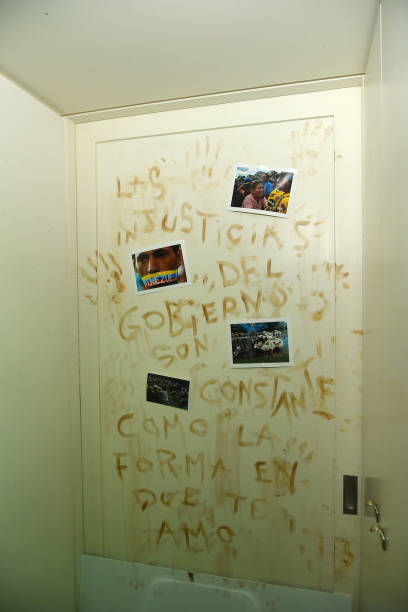 LAS
INJUSTICIAS
DEL
GOBIERNO
SON
CONSTANTE
COMO LA
FORMA EN
QUE TE
AMO
VENEZUELA